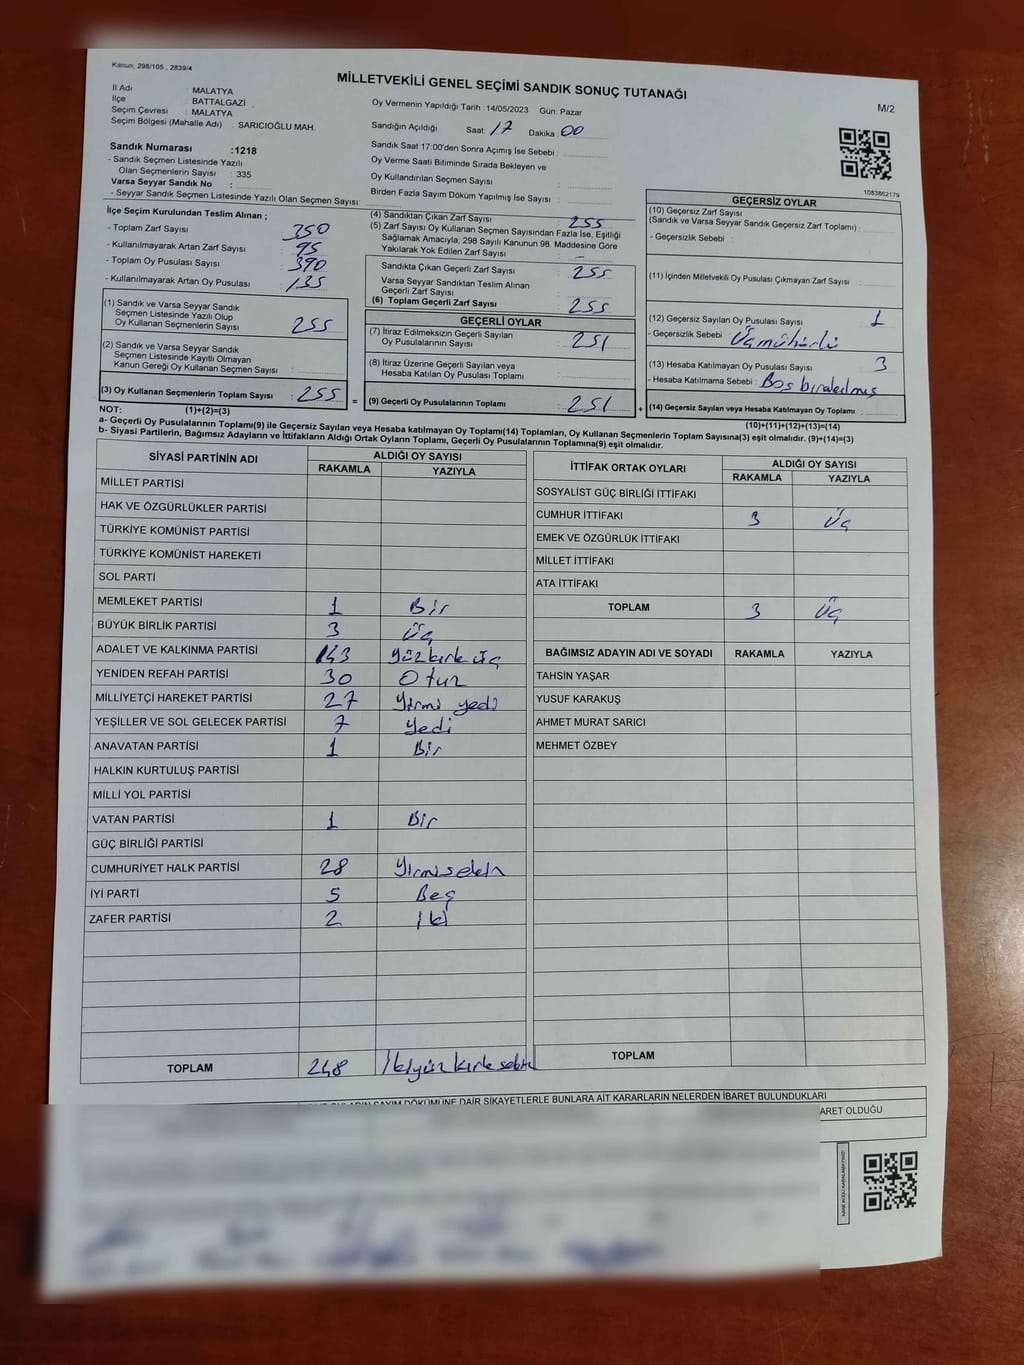 Kanun, 298/105 , 2839/4
MİLLETVEKİLİ GENEL SEÇİMİ SANDIK SONUÇ TUTANAĞI
M/2
İl Adı : MALATYA
İlçe : BATTALGAZİ
Seçim Çevresi : MALATYA
Seçim Bölgesi (Mahalle Adı) : SARICIOĞLU MAH.
Sandık Numarası :1218
- Sandık Seçmen Listesinde Yazılı
Olan Seçmenlerin Sayısı : 335
Varsa Seyyar Sandık No :
- Seyyar Sandık Seçmen Listesinde Yazılı Olan Seçmen Sayısı:
Oy Vermenin Yapıldığı Tarih : 14/05/2023 Gün: Pazar
Sandığın Açıldığı Saat: 17 Dakika: 00
Sandık Saat 17:00'den Sonra Açılmış İse Sebebi :
Oy Verme Saati Bitiminde Sırada Bekleyen ve
Oy Kullandırılan Seçmen Sayısı :
Birden Fazla Sayım Döküm Yapılmış İse Sayısı :
1083862179
İlçe Seçim Kurulundan Teslim Alınan ;
- Toplam Zarf Sayısı : 350
- Kullanılmayarak Artan Zarf Sayısı : 95
- Toplam Oy Pusulası Sayısı : 390
- Kullanılmayarak Artan Oy Pusulası : 135
(1) Sandık ve Varsa Seyyar Sandık
Seçmen Listesinde Yazılı Olup
Oy Kullanan Seçmenlerin Sayısı : 255
(2) Sandık ve Varsa Seyyar Sandık
Seçmen Listesinde Kayıtlı Olmayan
Kanun Gereği Oy Kullanan Seçmen Sayısı :
(3) Oy Kullanan Seçmenlerin Toplam Sayısı : 255 =
(4) Sandıktan Çıkan Zarf Sayısı : 255
(5) Zarf Sayısı Oy Kullanan Seçmen Sayısından Fazla İse, Eşitliği
Sağlamak Amacıyla, 298 Sayılı Kanunun 98. Maddesine Göre
Yakılarak Yok Edilen Zarf Sayısı : -
Sandıkta Çıkan Geçerli Zarf Sayısı : 255
Varsa Seyyar Sandıktan Teslim Alınan
Geçerli Zarf Sayısı :
(6) Toplam Geçerli Zarf Sayısı : 255
GEÇERLİ OYLAR
(7) İtiraz Edilmeksizin Geçerli Sayılan
Oy Pusulalarının Sayısı : 251
(8) İtiraz Üzerine Geçerli Sayılan veya
Hesaba Katılan Oy Pusulası Toplamı :
(9) Geçerli Oy Pusulalarının Toplamı : 251 +
GEÇERSİZ OYLAR
(10) Geçersiz Zarf Sayısı
(Sandık ve Varsa Seyyar Sandık Geçersiz Zarf Toplamı) :
- Geçersizlik Sebebi :
(11) İçinden Milletvekili Oy Pusulası Çıkmayan Zarf Sayısı :
(12) Geçersiz Sayılan Oy Pusulası Sayısı : 1
- Geçersizlik Sebebi : Üç mühürlü
(13) Hesaba Katılmayan Oy Pusulası Sayısı : 3
- Hesaba Katılmama Sebebi : Boş bırakılmış
(14) Geçersiz Sayılan veya Hesaba Katılmayan Oy Toplamı :
NOT: (1)+(2)=(3) (10)+(11)+(12)+(13)=(14)
a- Geçerli Oy Pusulalarının Toplamı(9) ile Geçersiz Sayılan veya Hesaba Katılmayan Oy Toplamı(14) Toplamları, Oy Kullanan Seçmenlerin Toplam Sayısına(3) eşit olmalıdır. (9)+(14)=(3)
b- Siyasi Partilerin, Bağımsız Adayların ve İttifakların Aldığı Ortak Oyların Toplamı, Geçerli Oy Pusulalarının Toplamına(9) eşit olmalıdır.
SİYASİ PARTİNİN ADI ALDIĞI OY SAYISI
RAKAMLA YAZIYLA
MİLLET PARTİSİ
HAK VE ÖZGÜRLÜKLER PARTİSİ
TÜRKİYE KOMÜNİST PARTİSİ
TÜRKİYE KOMÜNİST HAREKETİ
SOL PARTİ
MEMLEKET PARTİSİ 1 Bir
BÜYÜK BİRLİK PARTİSİ 3 Üç
ADALET VE KALKINMA PARTİSİ 143 Yüz kırk üç
YENİDEN REFAH PARTİSİ 30 Otuz
MİLLİYETÇİ HAREKET PARTİSİ 27 Yirmi yedi
YEŞİLLER VE SOL GELECEK PARTİSİ 7 Yedi
ANAVATAN PARTİSİ 1 Bir
HALKIN KURTULUŞ PARTİSİ
MİLLİ YOL PARTİSİ
VATAN PARTİSİ 1 Bir
GÜÇ BİRLİĞİ PARTİSİ
CUMHURİYET HALK PARTİSİ 28 Yirmi sekiz
İYİ PARTİ 5 Beş
ZAFER PARTİSİ 2 İki
TOPLAM 248 İkiyüz kırk sekiz
İTTİFAK ORTAK OYLARI ALDIĞI OY SAYISI
RAKAMLA YAZIYLA
SOSYALİST GÜÇ BİRLİĞİ İTTİFAKI
CUMHUR İTTİFAKI 3 Üç
EMEK VE ÖZGÜRLÜK İTTİFAKI
MİLLET İTTİFAKI
ATA İTTİFAKI
TOPLAM 3 Üç
BAĞIMSIZ ADAYIN ADI VE SOYADI RAKAMLA YAZIYLA
TAHSİN YAŞAR
YUSUF KARAKUŞ
AHMET MURAT SARICI
MEHMET ÖZBEY
TOPLAM
OYLARIN SAYIM DÖKÜMÜNE DAİR ŞİKAYETLERLE BUNLARA AİT KARARLARIN NELERDEN İBARET BULUNDUKLARI
ARET OLDUĞU